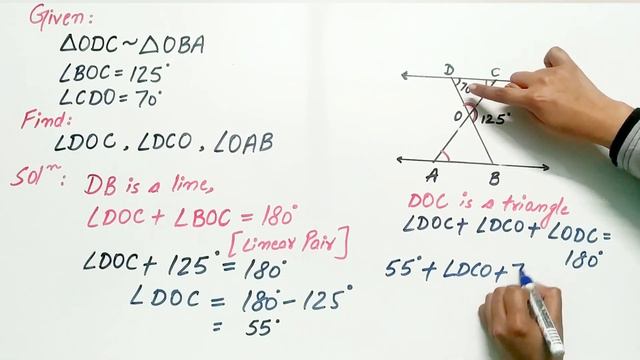 Given:
△ODC ~ △OBA
∠BOC = 125°
∠CDO = 70°
Find:
∠DOC, ∠DCO, ∠OAB
Solⁿ: DB is a line,
∠DOC + ∠BOC = 180°
[Linear Pair]
∠DOC + 125° = 180°
∠DOC = 180° - 125°
= 55°
D C
70
O 125°
A B
DOC is a triangle
∠DOC + ∠DCO + ∠ODC =
180°
55° + ∠DCO + 7